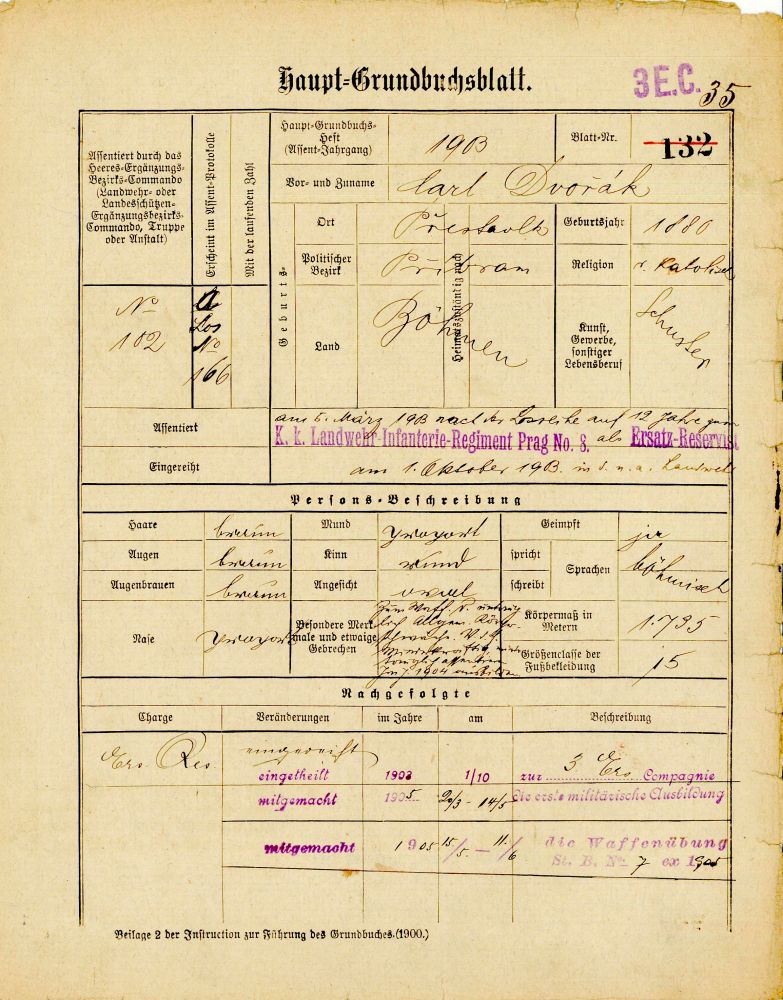 Haupt-Grundbuchsblatt.
3 E.C. 35
Assentiert durch das
Heeres-Ergänzungs-
Bezirks-Commando
(Landwehr- oder
Landesschützen-
Ergänzungsbezirks-
Commando, Truppe
oder Anstalt)
Erscheint im Assent-Protokolle
Mit der laufenden Zahl
Haupt-Grundbuchs-
Heft
(Assent-Jahrgang)
1903
Blatt-Nr.
132
Vor- und Zuname
Carl Dvořák
Geburts-
Ort
Geburtsjahr
1880
Politischer
Bezirk
Příbram
Heimatszuständig nach
Religion
r. katolisch
Land
Böhmen
Kunst,
Gewerbe,
sonstiger
Lebensberuf
Schuster
No
102
a
Los
No
166
Assentiert
am 5. März 1903 nach der Losreihe auf 12 Jahre zum
K. k. Landwehr-Infanterie-Regiment Prag No. 8. als Ersatz-Reservist
Eingereiht
am 1. Oktober 1903. in d. n. a. Landwehr
Persons-Beschreibung
Haare
braun
Mund
proport
Geimpft
ja
Augen
braun
Kinn
rund
spricht
Sprachen
böhmisch
Augenbrauen
braun
Angesicht
oval
schreibt
Nase
proport
Besondere Merk-
male und etwaige
Gebrechen
Körpermaß in
Metern
1.735
Größenclasse der
Fußbekleidung
15
Nachgefolgte
Charge
Veränderungen
im Jahre
am
Beschreibung
Ers. Res.
eingereiht
eingetheilt 1903 1/10 zur 3 Ers Compagnie
mitgemacht 1905 20/3 - 14/5 die erste militärische Ausbildung
mitgemacht 1905 15/5. - 11./6 die Waffenübung
St. B. No. 7 ex 1905
Beilage 2 der Instruction zur Führung des Grundbuches. (1900.)